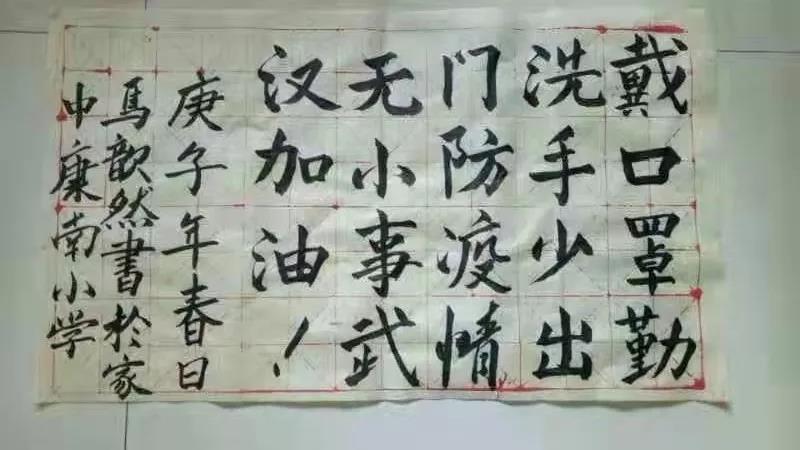 戴口罩勤
洗手少出
门防疫情
无小事武
汉加油！
庚子年春日
馬歆然書於家
中康南小学